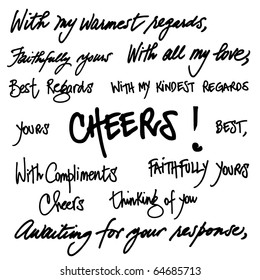 With my warmest regards,
Faithfully yours With all my love,
Best Regards WITH MY KINDEST REGARDS
YOURS CHEERS! BEST,
With Compliments FAITHFULLY YOURS
Cheers thinking of you
Awaiting for your response,
shutterstock.com · 64685713